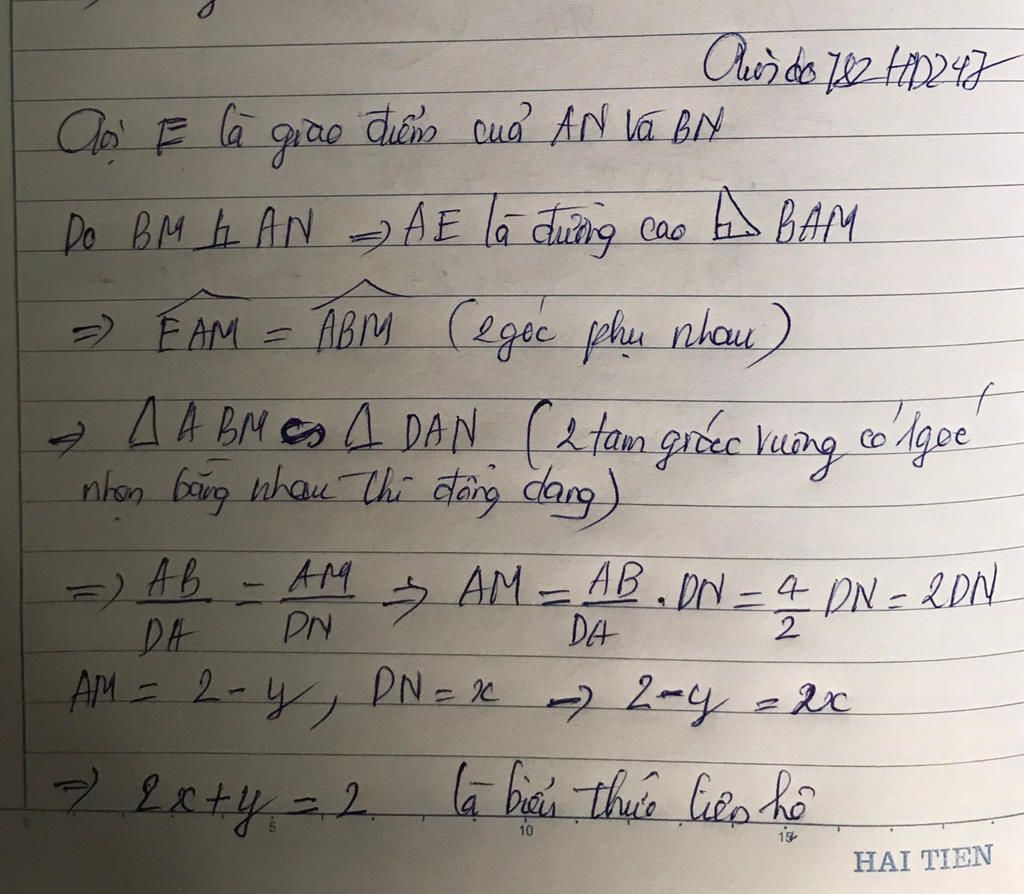 782 HD247
Gọi E là giao điểm cuả AN và BN
Do BM ⊥ AN ⇒ AE là đường cao △ BAM
⇒ \widehat{EAM} = \widehat{ABM} (2 góc phụ nhau)
⇒ Δ ABM ∽ Δ DAN (2 tam giác vuông có 1 góc
nhọn bằng nhau thì đồng dạng)
⇒ AB/DA = AM/DN ⇒ AM = AB/DA . DN = 4/2 DN = 2DN
AM = 2 - y, DN = x → 2 - y = 2x
⇒ 2x + y = 2 là biểu thức liên hệ
5 10 15
HAI TIEN